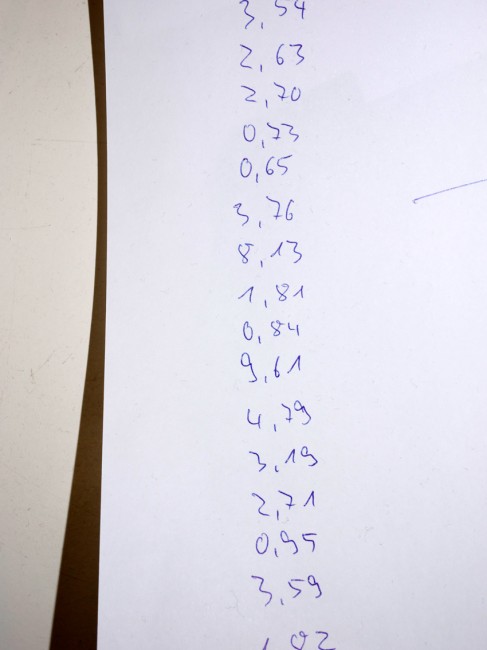 3,54
2,63
2,70
0,73
0,65
3,76
8,13
1,81
0,84
9,61
4,79
3,19
2,71
0,95
3,59
1,02